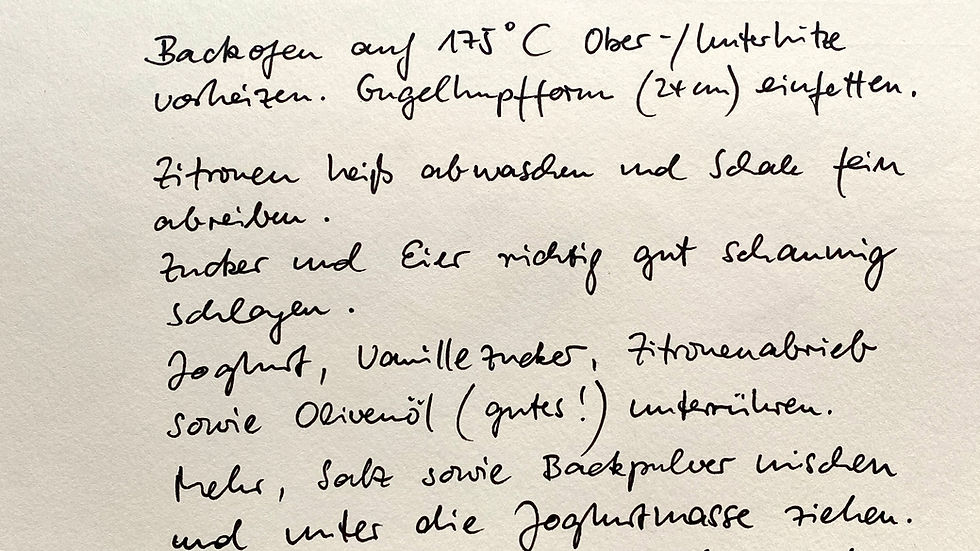 Backofen auf 175°C Ober-/Unterhitze
vorheizen. Gugelhupfform (24cm) einfetten.
Zitronen heiß abwaschen und Schale fein
abreiben.
Zucker und Eier richtig gut schaumig
schlagen.
Joghurt, Vanillezucker, Zitronenabrieb
sowie Olivenöl (gutes!) unterrühren.
Mehr, Salz sowie Backpulver mischen
und unter die Joghurtmasse ziehen.